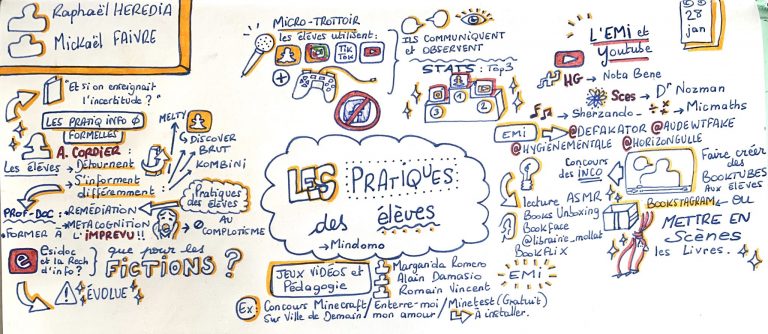 Raphaël HEREDIA
Mickaël FAIVRE
"Et si on enseignait
l'incertitude ?"
LES PRATIQ INFO Ø
FORMELLES
A. CORDIER :
Les élèves → Détournent
→ S'informent
différemment.
MELTY
DISCOVER
BRUT
KOMBINI
Pratiques
des élèves
AU
COMPLOTISME
PROF-DOC : → REMÉDIATION
→ METACOGNITION
FORMER À L'IMPREVU !!
esidoc
et la Rech
d'info ?
que pour les
FICTIONS ?
ÉVOLUE
MICRO-TROTTOIR
les élèves utilisent :
TIK
TOK
ILS COMMUNIQUENT
et OBSERVENT
STATS : Top 3
3
1
2
LES PRATIQUES
des élèves
→ Mindomo
JEUX VIDÉOS et
Pédagogie
Margarida Romero
Alain Damasio
Romain Vincent
Ex: Concours Minecraft / Enterre-moi / Minetest (Gratuit)
Sur Ville de Demain / mon amour / → À installer.
28
jan
L'EMI et
Youtube
HG → Nota Bene
Sces → Dr Nozman
Sherzando → Micmaths
EMI → @DEFAKATOR @AUDEWTFAKE
@HYGIENEMENTALE @HORIZONGULLE
Concours
des INCO
Faire créer
des
BOOKTUBES
AUX élèves
OU
BOOKSTAGRAM
lecture ASMR
Books Unboxing
BookFace
@librairie_mollat
BOOKFLIX
EMI
METTRE EN
Scènes
les Livres.